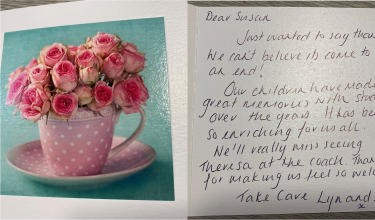 Dear Susan
Just wanted to say than
We can't believe its come to
an end!
Our children have made
great memories with stud
over the years. It has be
so enriching for us all.
We'll really miss seeing
Theresa at the coach. Than
for making us feel so welc
Take Care Lyn and
x